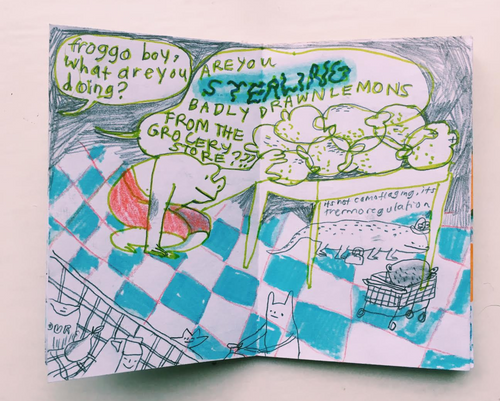 froggo boy,
what are you
doing?
ARE YOU
STEALING
BADLY DRAWN LEMONS
FROM THE
GROCERY
STORE???
its not camoflaging, its
thermoregulation